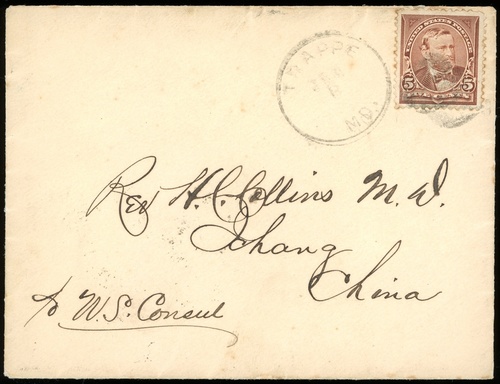 TRAPPE
MD.
UNITED STATES POSTAGE
5 5
Rev H. C. Collins M. D.
Ichang
China
to U.S. Consul